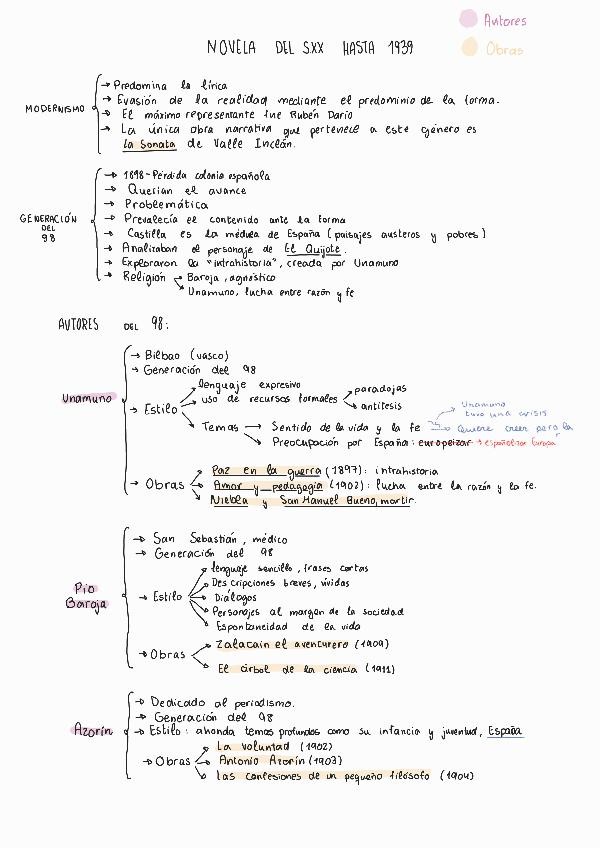 Autores
NOVELA DEL SXX HASTA 1939
Obras
MODERNISMO
→ Predomina la lírica
→ Evasión de la realidad mediante el predominio de la forma.
→ El máximo representante fue Rubén Darío
→ La única obra narrativa que pertenece a este género es
la Sonata de Valle Inclán.
GENERACIÓN
DEL
98
→ 1898 - Pérdida colonia española
→ Querían el avance
→ Problemática
→ Prevalecía el contenido ante la forma
→ Castilla es la médula de España (paisajes austeros y pobres)
→ Analizaban el personaje de El Quijote.
→ Exploraron la "intrahistoria", creada por Unamuno
→ Religión → Baroja, agnóstico
→ Unamuno, lucha entre razón y fe
AUTORES DEL 98:
Unamuno
→ Bilbao (vasco)
→ Generación del 98
→ Estilo
lenguaje expresivo
uso de recursos formales → paradojas
→ antítesis
Temas → Sentido de la vida y la fe
Unamuno
tuvo una crisis
Quiere creer pero la
→ Preocupación por España: europeizar → españolizar Europa
→ Obras
Paz en la guerra (1897): intrahistoria
Amor y pedagogía (1902): lucha entre la razón y la fe.
Niebla y San Manuel Bueno, martir.
Pío
Baroja
→ San Sebastián, médico
→ Generación del 98
→ Estilo
lenguaje sencillo, frases cortas
Descripciones breves, vívidas
Diálogos
Personajes al margen de la sociedad
Espontaneidad de la vida
→ Obras
Zalacaín el aventurero (1909)
El árbol de la ciencia (1911)
Azorín
→ Dedicado al periodismo.
→ Generación del 98
→ Estilo: ahonda temas profundos como su infancia y juventud, España
→ Obras
La voluntad (1902)
Antonio Azorín (1903)
Las confesiones de un pequeño filósofo (1904)